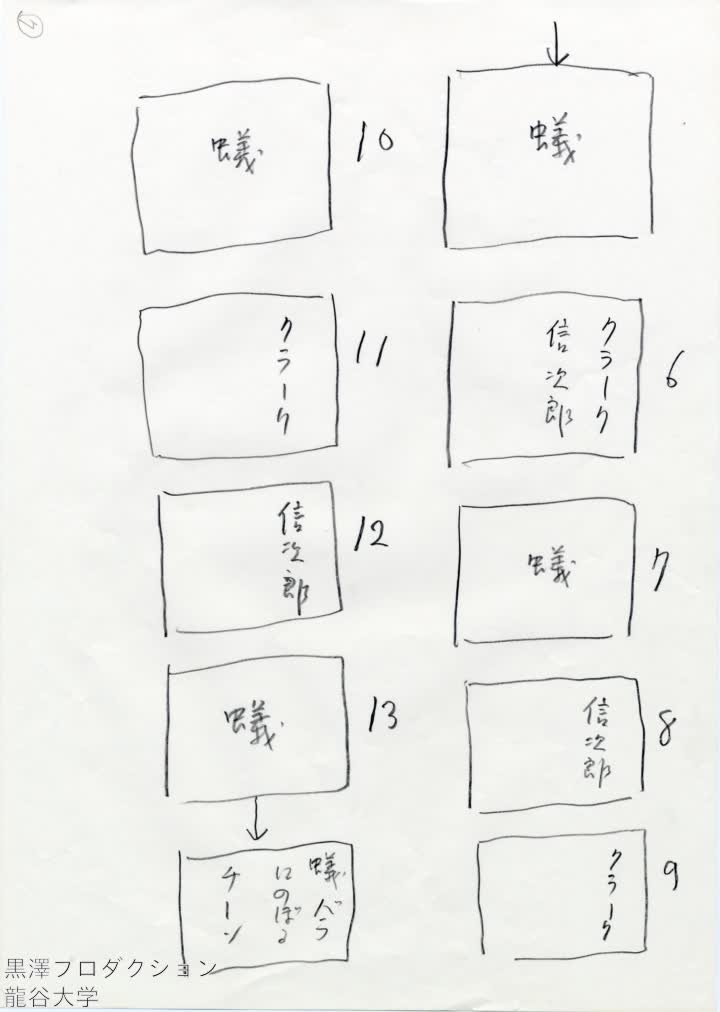 蟻
6
クラーク
信次郎
7
蟻
8
信次郎
9
クラーク
10
蟻
11
クラーク
12
信次郎
13
蟻
蟻バラ
にのぼる
チーン
黒澤プロダクション
龍谷大学